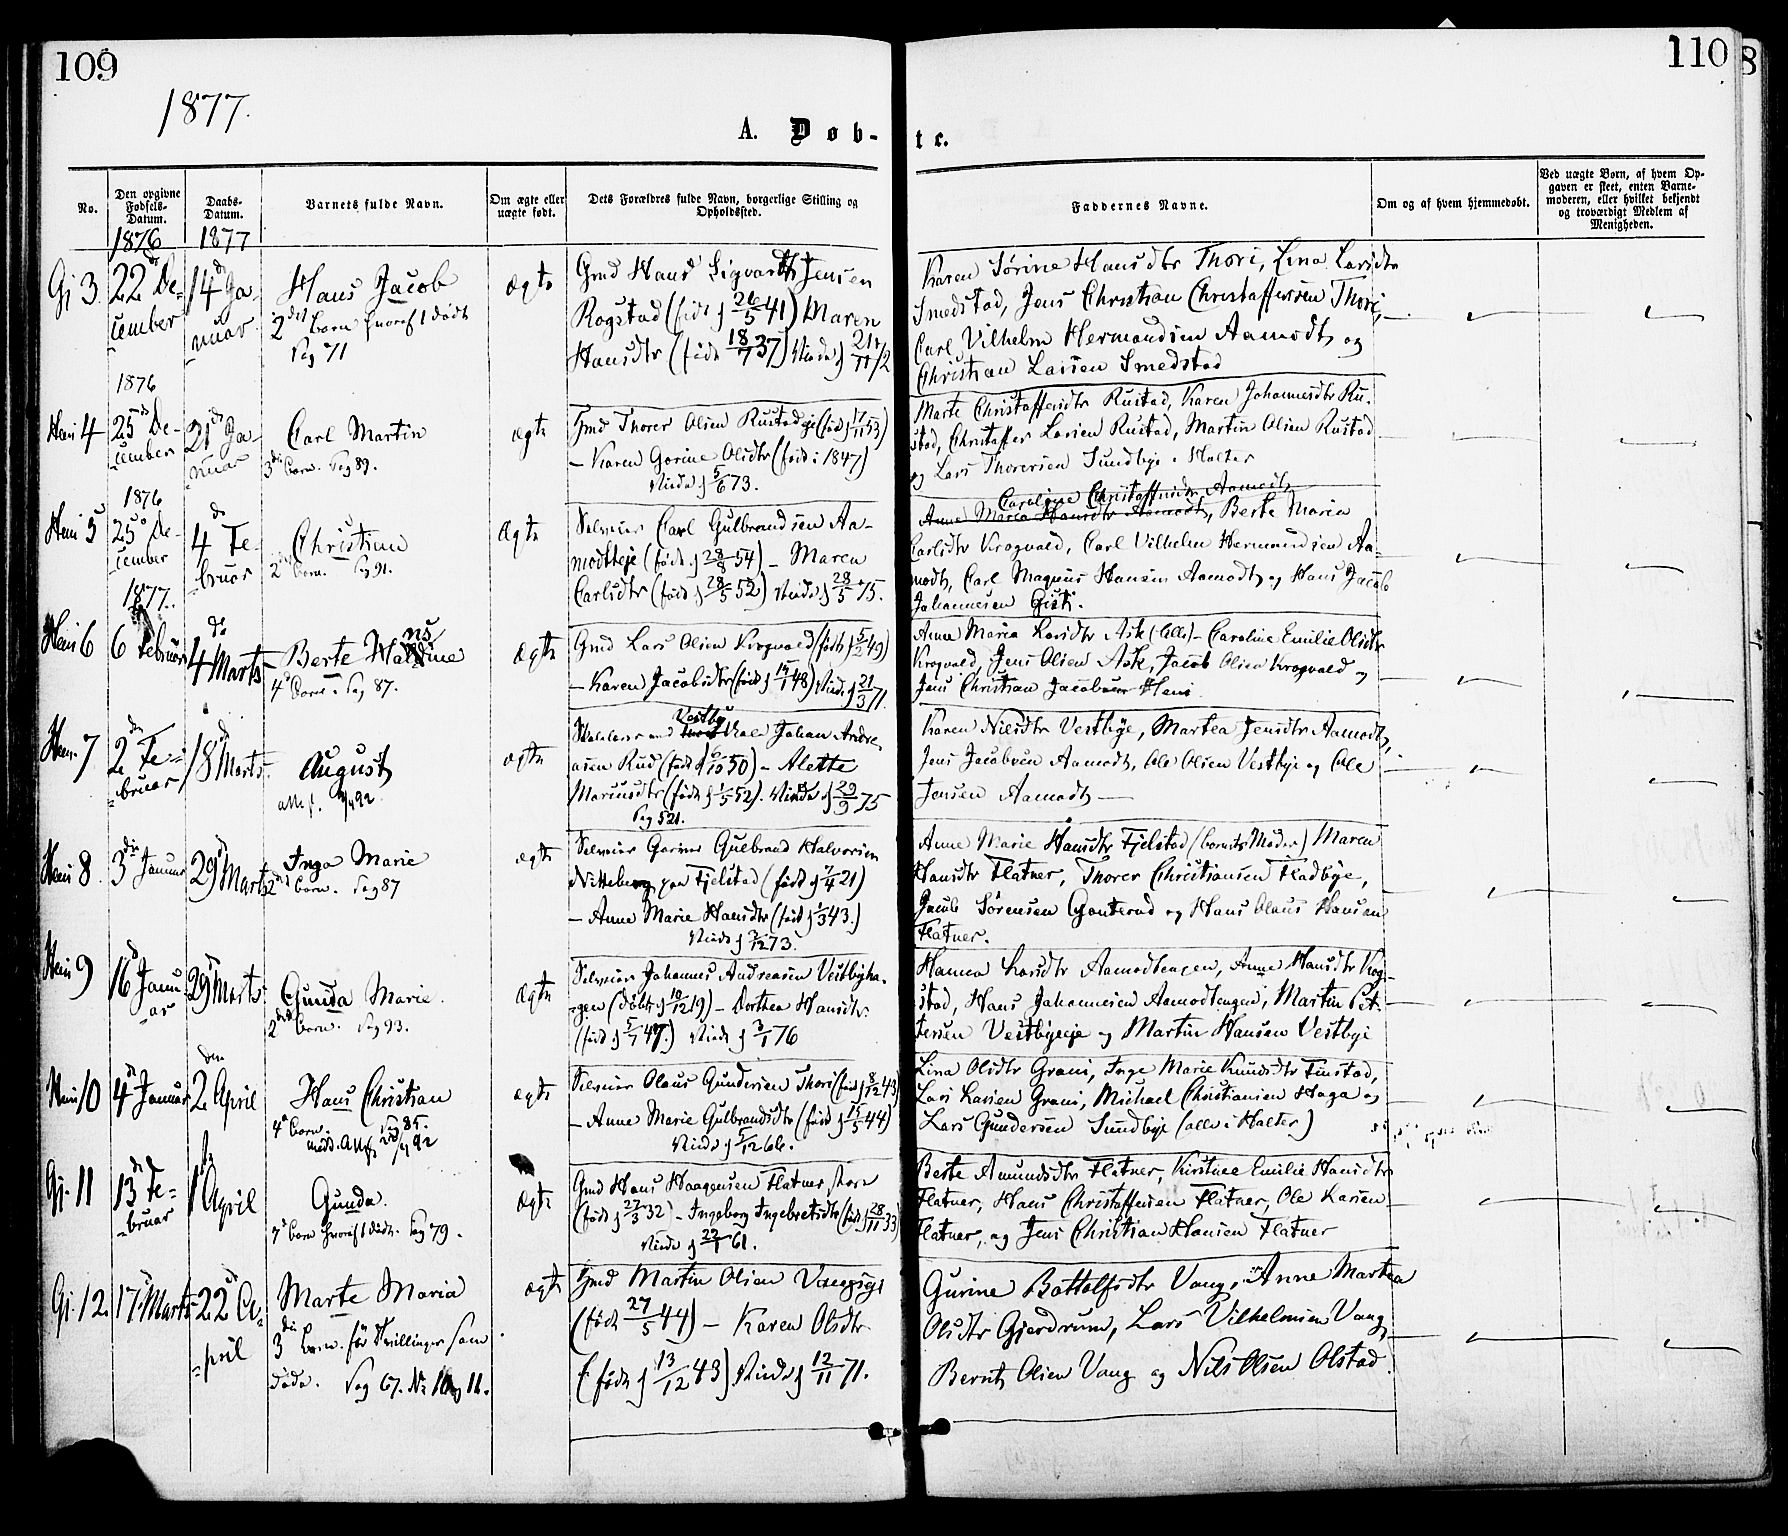 109
110
8
1877.
A. Døb-
te.
No.
Den opgivne Fødsels-Datum.
Daabs-Datum.
Barnets fulde Navn.
Om ægte eller uægte født.
Dets Forældres fulde Navn, borgerlige Stilling og Opholdssted.
Faddernes Navne.
Om og af hvem hjemmedøbt.
Ved uægte Børn, af hvem Opgaven er skeet, enten Barnemoderen, eller hvilket bekjendt og troværdigt Medlem af Menigheden.
1876
1877
Gj 3
22de De-
cember
14de Ja-
nuar
Hans Jacob
2det Barn hvoraf 1 dødt
Pag 71
ægte
Gmd Hans Sigvardt Jensen
Rogstad (født d 26/5 41) Maren
Hansdtr (født 18/7 37) Viede d 21/11 72
Karen Sørine Hansdtr Thori, Lina Larsdtr
Smedstad, Jens Christian Christoffersen Thori,
Carl Vilhelm Hermandsen Aamodt og
Christian Larsen Smedstad
1876
Heni 4
25de De-
cember
21de Ja-
nuar
Carl Martin
3die Barn. Pag 89.
ægte
Gmd Thorer Olsen Rustadeje (født d 17/11 53)
- Karen Gorine Olsdtr (født i 1847)
Viede d 5/6 73.
Marte Christoffersdtr Rustad, Karen Johannesdtr Ru-
stad, Christoffer Larsen Rustad, Martin Olsen Rustad
og Lars Thorersen Sundbye i Holter
1876
Heni 5
25de De-
cember
4de Fe-
bruar
Christian
2det Barn. Pag 91.
Ægte
Selveier Carl Gulbrandsen Aa-
modteje (født d 28/8 54) - Maren
Carlsdtr (født d 28/5 52) Viede d 28/5 75.
Caroline Christoffersdtr Aamodt
Anne Maria Hansdtr Aamodt, Berte Maria
Carlsdtr Krogvold, Carl Vilhelm Hermandsen Aa-
modt, Carl Magnus Hansen Aamodt og Hans Jacob
Johannesen Gisti.
1877.
Heni 6
6 Februar
4de Marts
Berte Hansine
4de Barn. Pag 87.
ægte
Gmd Lars Olsen Krogvold (født d 5/2 49)
- Karen Jacobsdtr (født d 15/1 48) Viede d 21/3 71.
Anne Maria Larsdtr Ask - Caroline Emilie Olsdtr
Krogvold, Jens Olsen Ask, Jacob Olsen Krogvold og
Jens Christian Jacobsen Heni
Heni 7
2den Fe-
bruar
18de Marts
August
ægte
Vestby
Johan Andre-
asen Rud (født d 6/10 50) - Alette
Mariusdtr (født d 1/5 52). Viede d 29/9 75
Pag 521.
Karen Nilsdtr Vestbye, Martea Jensdtr Aamodt,
Jens Jacobsen Aamodt, Ole Olsen Vestbye og Ole
Jensen Aamodt
Heni 8
3die Januar
29de Marts
Inga Marie
2det Barn. Pag 87
ægte
Selveier Gulbrand Halvorsen
Nitteberg paa Fjelstad (født d 7/4 21)
- Anne Marie Hansdtr (født d 1/3 43.)
Viede d 7/12 73.
Anne Marie Hansdtr Fjelstad (barnets Moder) Maren
Hansdtr Flatner, Thorer Christiansen Fladbye,
Jacob Sørensen Gouterud og Hans Olaus Hansen
Flatner.
Heni 9
16de Janu-
ar
29de Marts
Gunda Marie.
2det Barn. Pag 93.
ægte
Selveier Johannes Andreasen Vestbyha-
gen (døbt d 10/12 19) - Dorthea Hansdtr
(født d 5/7 47.) Viede d 3/1 76
Hanna Larsdtr Aamodtengen, Anne Hansdtr Rog-
stad, Hans Johannesen Aamodtengen, Martin Pet-
tersen Vestbyeeje og Martin Hansen Vestbye
Heni 10
4de Januar
2den April
Hans Christian
4de Barn. Pag 85.
ægte
Selveier Olaus Gundersen Thori (født d 8/12 43)
- Anne Marie Gulbrandsdtr (født d 15/5 44)
Viede d 5/12 66.
Lina Olsdtr Grani, Inge Marie Knudsdtr Finstad,
Lars Larsen Grani, Michael Christiansen Haga og
Lars Gundersen Sundbye (alle i Holter)
Gj. 11
13de Fe-
bruar
1ste April
Gunda.
7de Barn hvoraf 1 dødt. Pag 79.
ægte
Gmd Hans Haagensen Flatner store
(født d 27/3 32) - Ingeborg Ingebretsdtr (født d 28/11 33)
Viede d 22/1 61.
Berte Amundsdtr Flatner, Kirstine Emilie Hansdtr
Flatner, Hans Christoffersen Flatner, Ole Larsen
Flatner, og Jens Christian Hansen Flatner
Gj. 12.
17de Marts
22de A-
pril
Marte Maria
3die Barn. før Tvillinger som
døde. Pag 67. No 10 og 11.
ægte
Gmd Martin Olsen Vangseje
(født 27/5 44) - Karen Olsdtr
(født d 13/12 43) Viede d 12/11 71.
Gurine Bottolfsdtr Vang, Anne Martea
Olsdtr Gjerdrum, Lars Vilhelmsen Vang,
Bernt Olsen Vang og Nils Olsen Olstad.